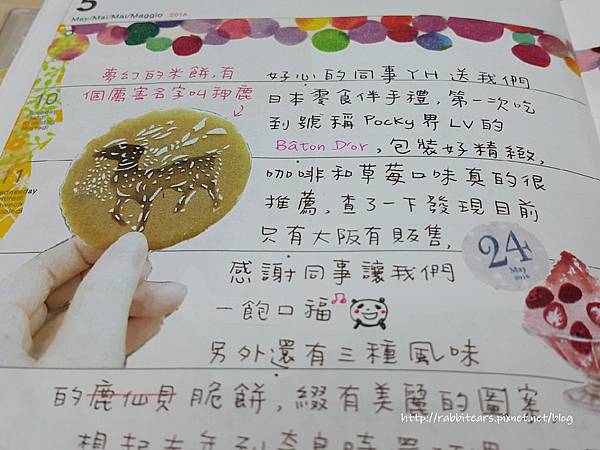 5
May/Mai/Mai/Maggio 2016
夢幻的米餅,有
個厲害名字叫神鹿
10
11
好心的同事YH送我們
日本零食伴手禮,第一次吃
到號稱Pocky界LV的
Bâton D'or,包裝好精緻,
咖啡和草莓口味真的很
推薦,查了一下發現目前
只有大阪有販售,
24
May
2016
感謝同事讓我們
一飽口福
另外還有三種風味
的鹿仙貝脆餅,綴有美麗的圖案
http://rabbitears.pixnet.net/blog
想起去年到奈良時